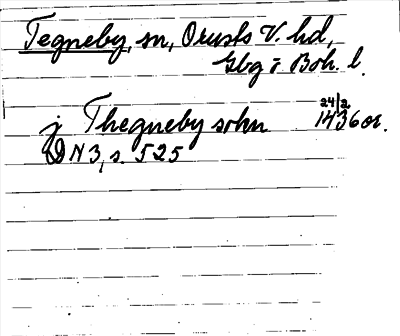 Tegneby, sn, Orusts V. hd,
Gbg o Boh. l.
j Thegneby sokn 24/2 1436 or.
DN 3, s. 525